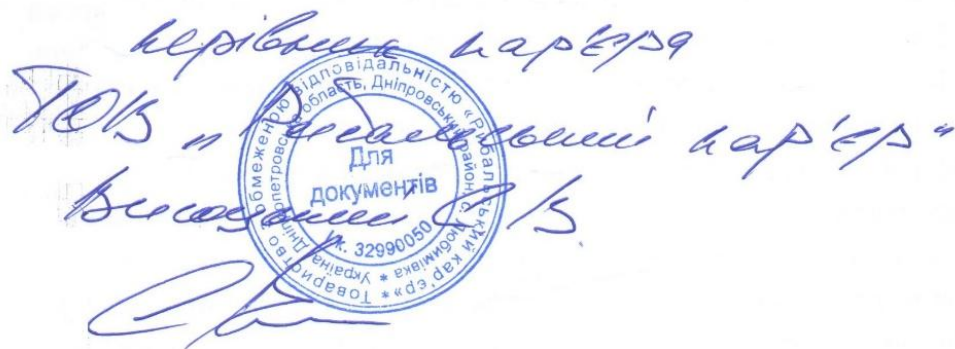 керівник кар'єра
ТОВ „Рибальський кар'єр"
С. В.
Товариство з обмеженою відповідальністю «Рибальський кар'єр» *
Україна Дніпропетровська область, Дніпровський район, с. Любимівка *
Для
документів
і.к. 32990050